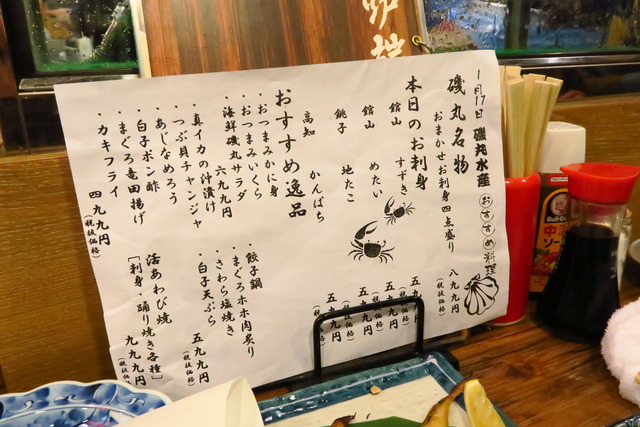 1月17日 磯丸水産 おすすめ料理
磯丸名物
おまかせお刺身四点盛り 八九九円
(税抜価格)
本日のお刺身
館山 すずき 五九九円
(税抜価格)
館山 めたい 五九九円
(税抜価格)
銚子 地たこ 五九九円
(税抜価格)
高知 かんぱち 五九九円
(税抜価格)
おすすめ逸品
・おつまみかに身
・おつまみいくら
・海鮮磯丸サラダ
六九九円
・真イカの沖漬け
・つぶ貝チャンジャ
・あじなめろう
・白子ポン酢
・まぐろ竜田揚げ
・カキフライ
四九九円
(税抜価格)
・餃子鍋
・まぐろホホ肉炙り
・さわら塩焼き
・白子天ぷら
五九九円
(税抜価格)
活あわび焼
[刺身・踊り焼き各種]
九九九円
(税抜価格)
Bull-Dog
中濃ソー